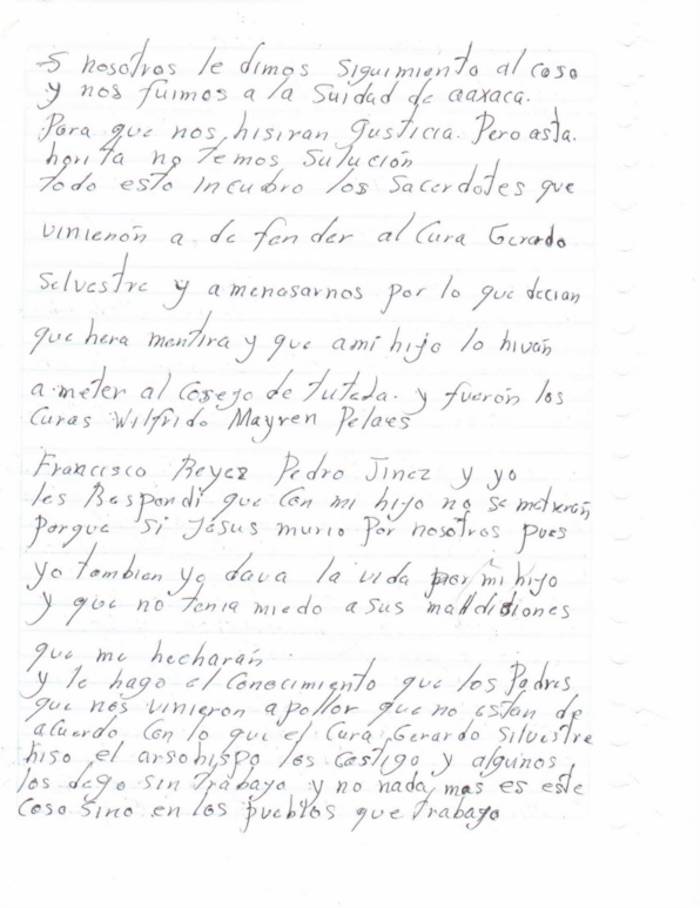 5 nosotros le dimos siguimiento al caso
y nos fuimos a la Suidad de oaxaca.
Para que nos hisiran Justicia. Pero asta.
horita no temos Sulución
todo esto incubro los Sacerdotes que
vinienón a de fen der al Cura Gerardo
Selvestre y amenasarnos por lo que decian
que hera mentira y que ami hijo lo hivan
a meter al Cosejo de tutela. y fuerón los
Curas Wilfrido Mayren Pelaes
Francisco Reyez Pedro Jinez y yo
les Respondi que Con mi hijo no se metieran
porque si Jesus murio por nosotros pues
yo tombien yo dava la vida por mi hijo
y que no tenia miedo a sus maldisiones
que me hecharan
y le hago el Conocimiento que los Padres
que nos vinieron apollor que no estan de
acuerdo Con lo que el Cura Gerardo Silvestre
hiso el arsobispo los Castigo y algunos
los dego sin trabajo y no nada mas es este
Caso Sino en los pueblos que trabajo